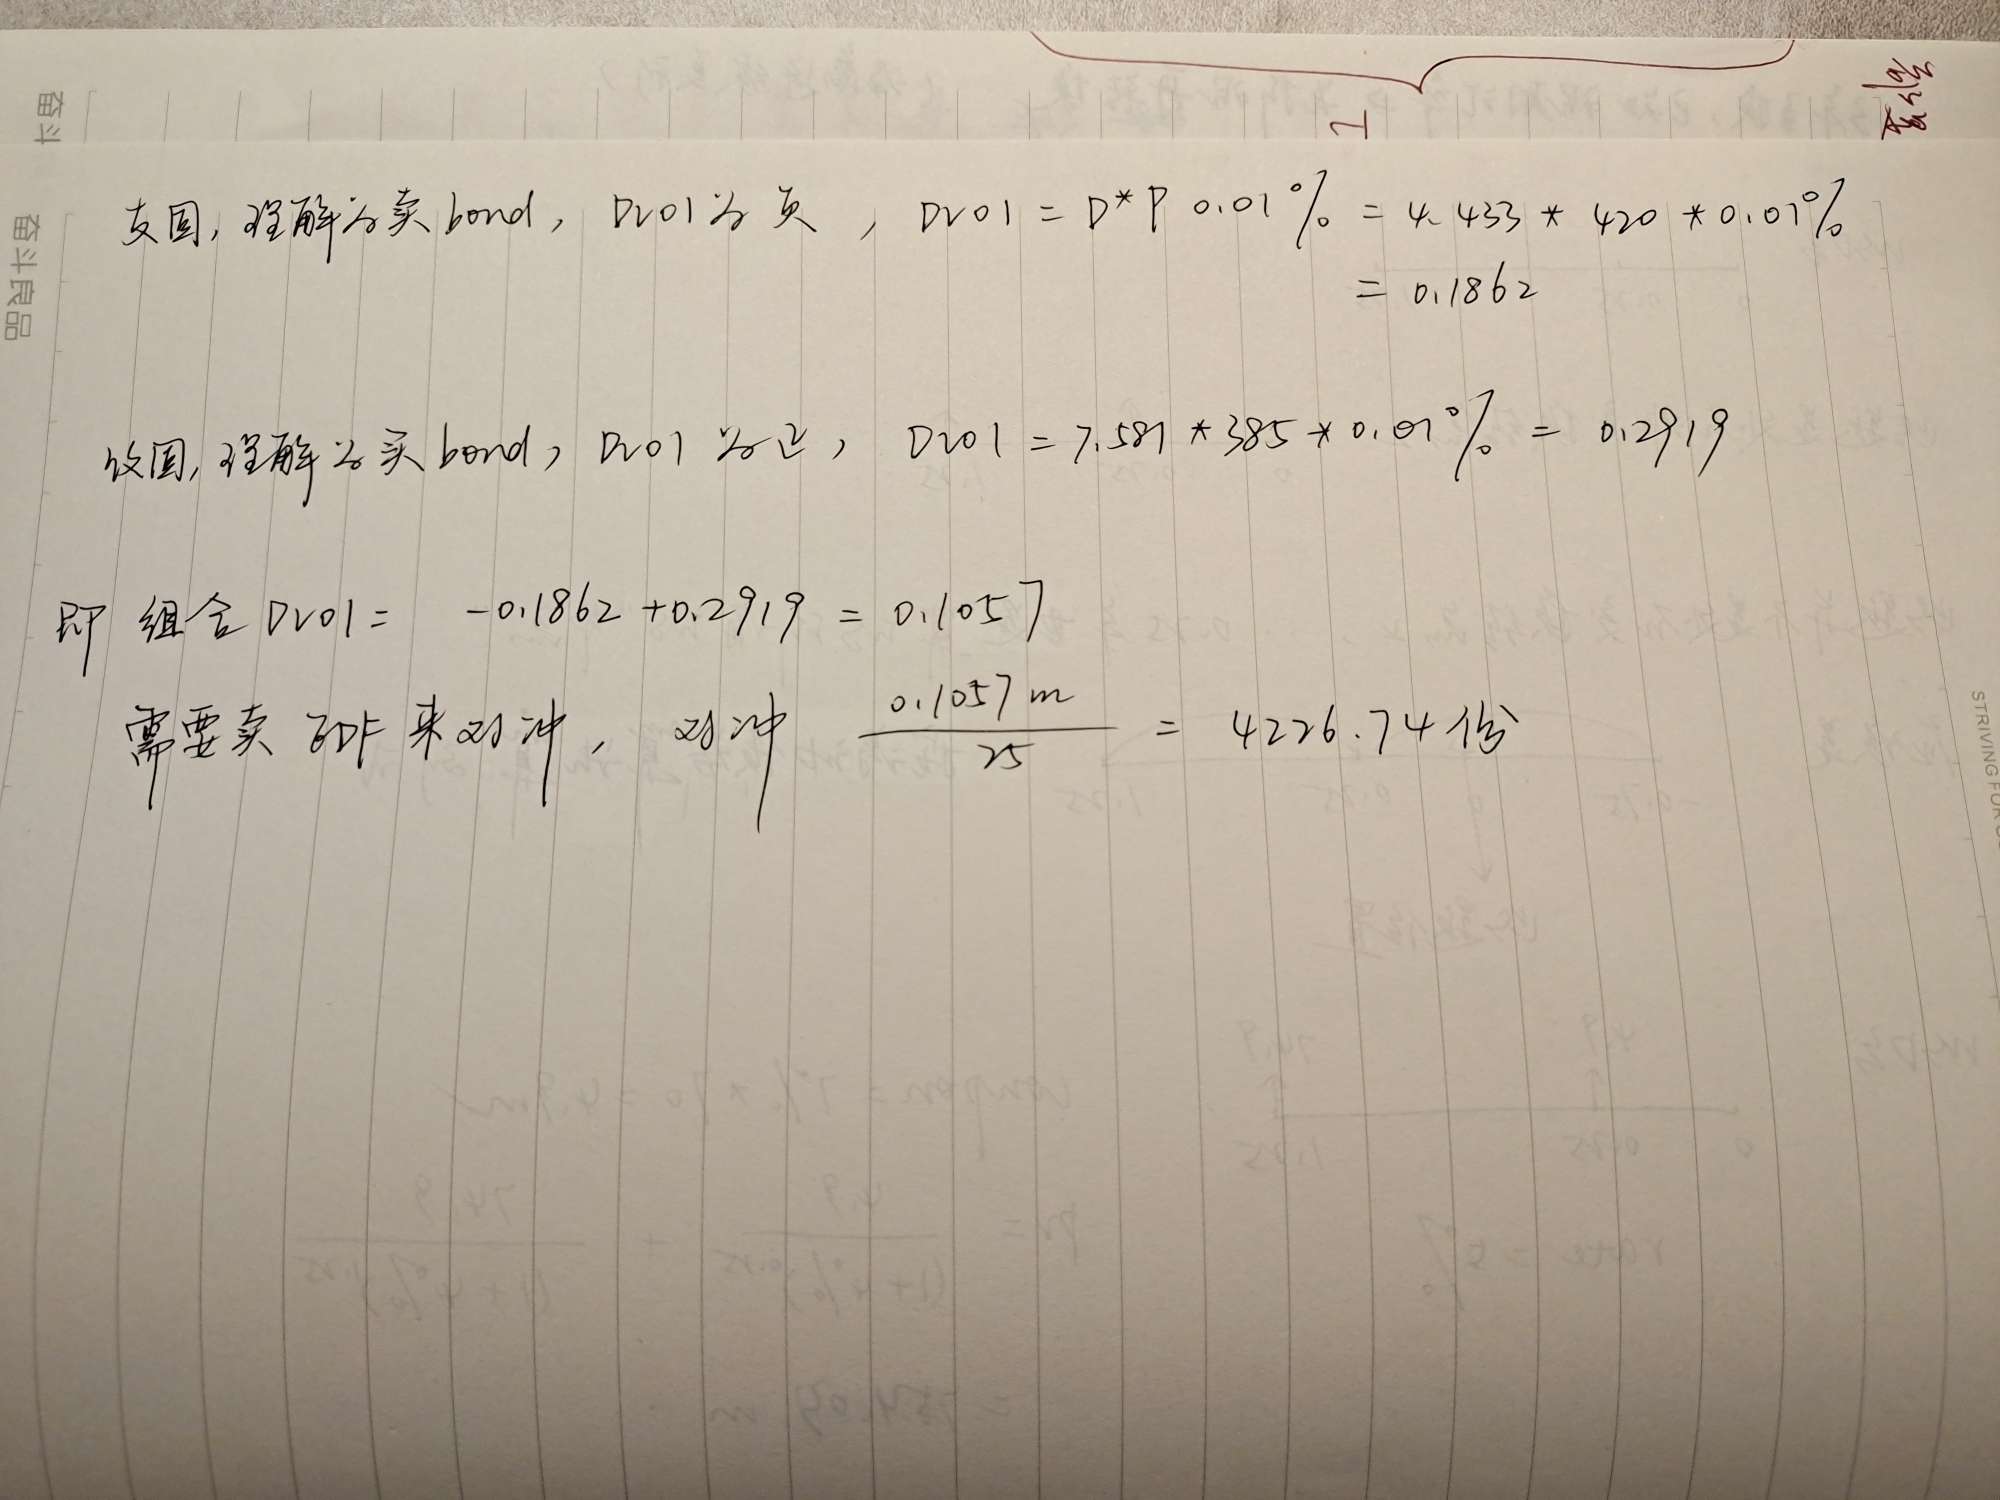 奋斗
奋斗良品
1
支固，理解为卖bond，DV01为负，DV01 = D*P 0.01% = 4.433 * 420 * 0.01%
= 0.1862
收固，理解为买bond，DV01为正，DV01 = 7.581 * 385 * 0.01% = 0.2919
即 组合DV01 = -0.1862 + 0.2919 = 0.1057
需要卖 EDF 来对冲，对冲 0.1057m / 25 = 4226.74份
STRIVING FOR